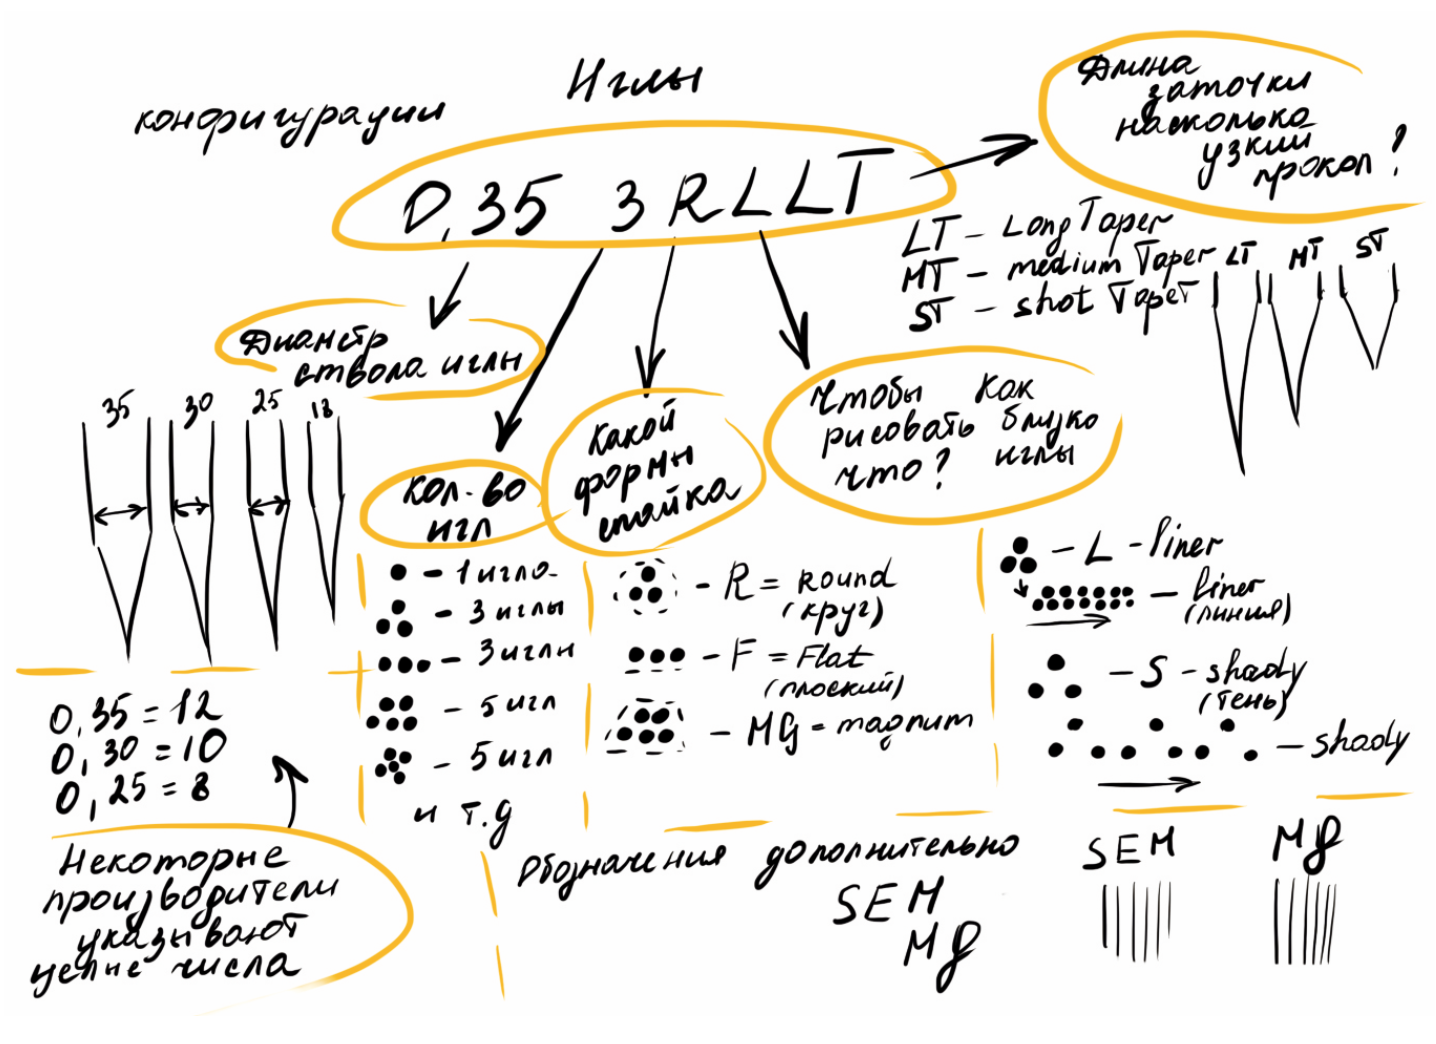 Иглы
конфигурации
0,35 3RLLT
Длина
заточки
насколько
узкий
прокол?
LT - Long Taper
MT - medium Taper
ST - shot Taper
LT MT ST
Диаметр
ствола иглы
35 30 25 18
Кол-во
игл
Какой
формы
спайка
Чтобы
рисовать
что?
Как
близко
иглы
- 1 игла
- 3 иглы
- 3 иглы
- 5 игл
- 5 игл
и т.д
- R = Round
(круг)
- F = Flat
(плоский)
- MG = magnum
- L - liner
- liner
(линия)
- S - shady
(тень)
- shady
0,35 = 12
0,30 = 10
0,25 = 8
Некоторые
производители
указывают
целые числа
Обозначения дополнительно
SEM
Mg
SEM Mg